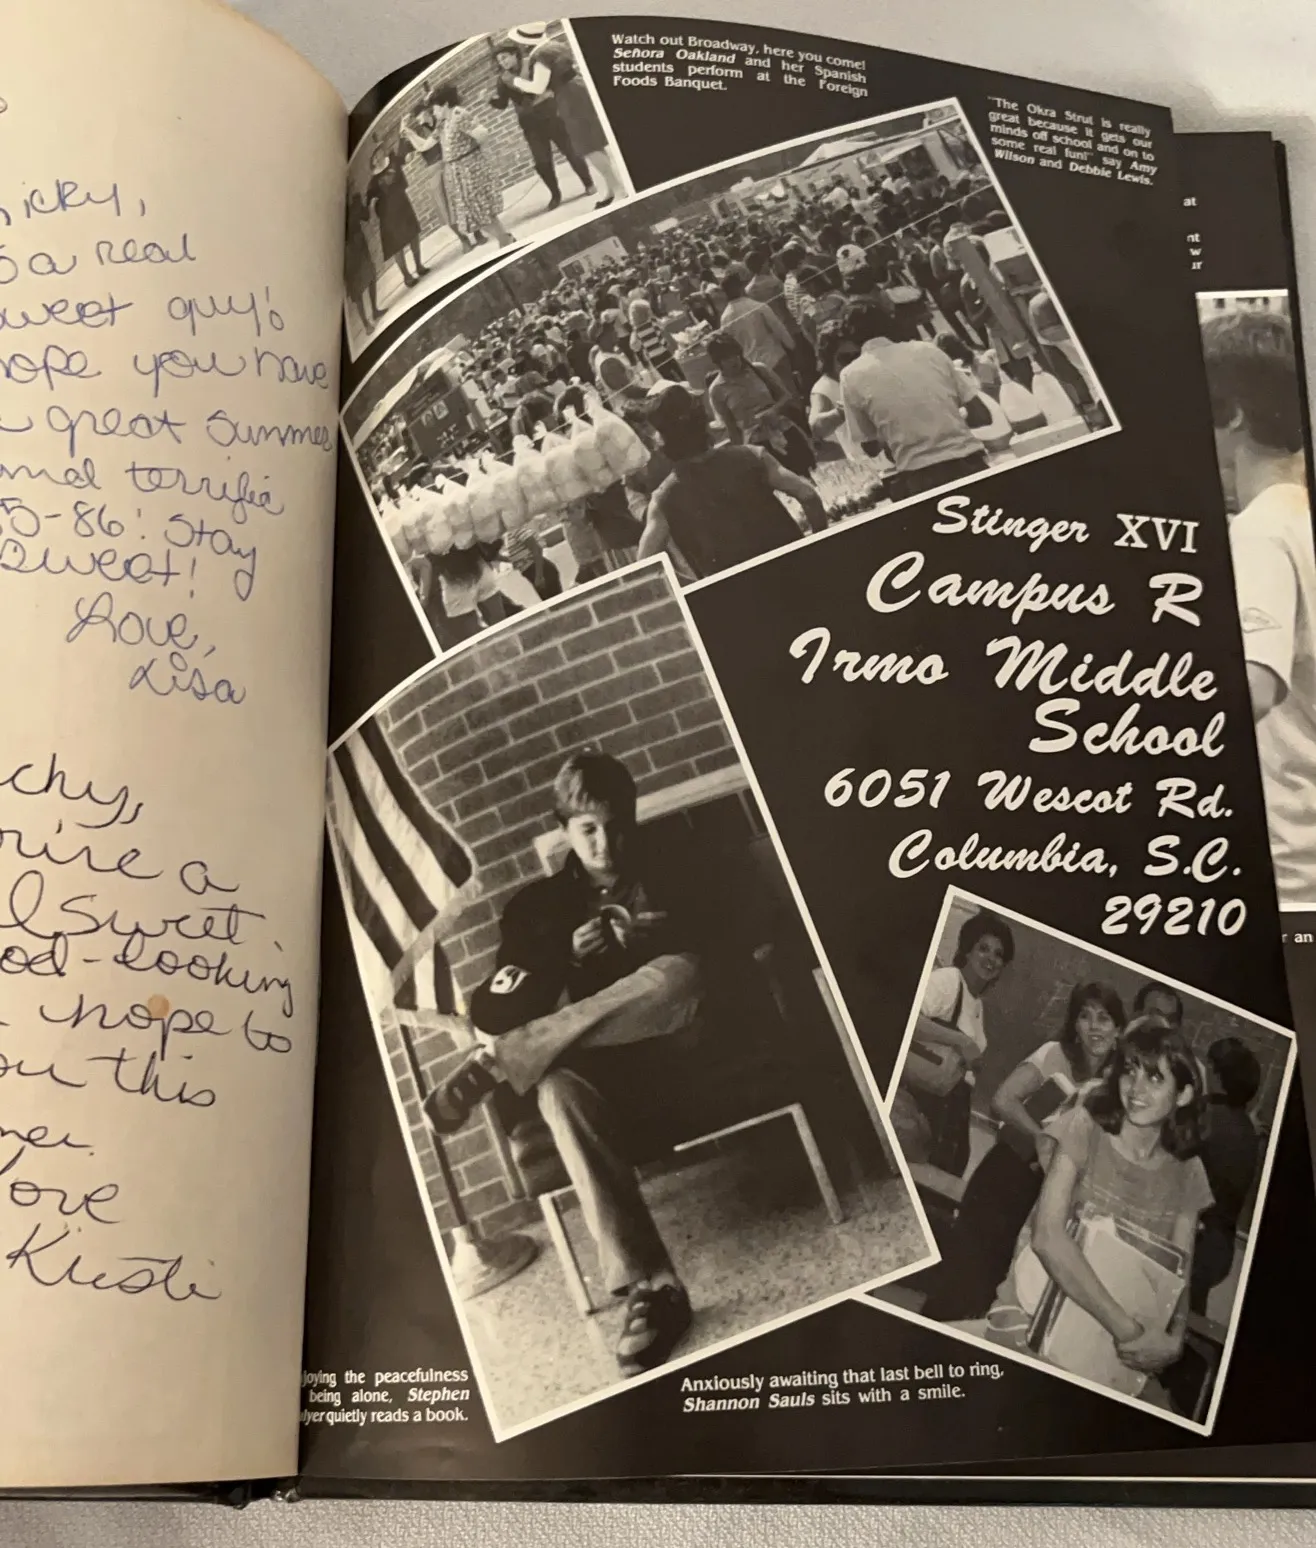 icky,
a real
sweet guy!
hope you have
great summer
and terrific
5-86! Stay
Sweet!
Love,
Lisa
chy,
a
Sweet,
od-looking
hope to
this
ove
Kristi
Watch out Broadway, here you come!
Señora Oakland and her Spanish
students perform at the Foreign
Foods Banquet.
"The Okra Strut is really
great because it gets our
minds off school and on to
some real fun!" say Amy
Wilson and Debbie Lewis.
Stinger XVI
Campus R
Irmo Middle
School
6051 Wescot Rd.
Columbia, S.C.
29210
joying the peacefulness
being alone, Stephen
yer quietly reads a book.
Anxiously awaiting that last bell to ring,
Shannon Sauls sits with a smile.
at
nt
w
ur
r an